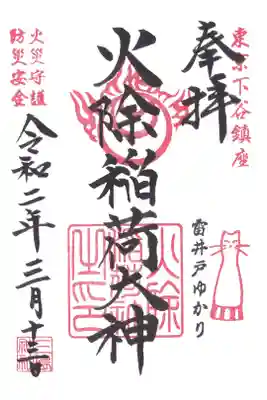 東京下谷鎮座
奉拝
雷井戸ゆかり
火除稲荷大神
火災守護
防災安全
令和二年三月十三日